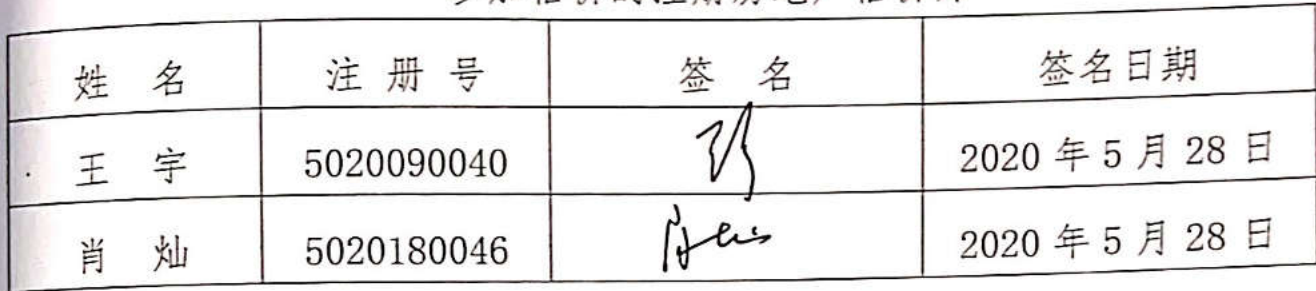 姓 名 注 册 号 签 名 签名日期
王 宇 5020090040 2020 年 5 月 28 日
肖 灿 5020180046 2020 年 5 月 28 日